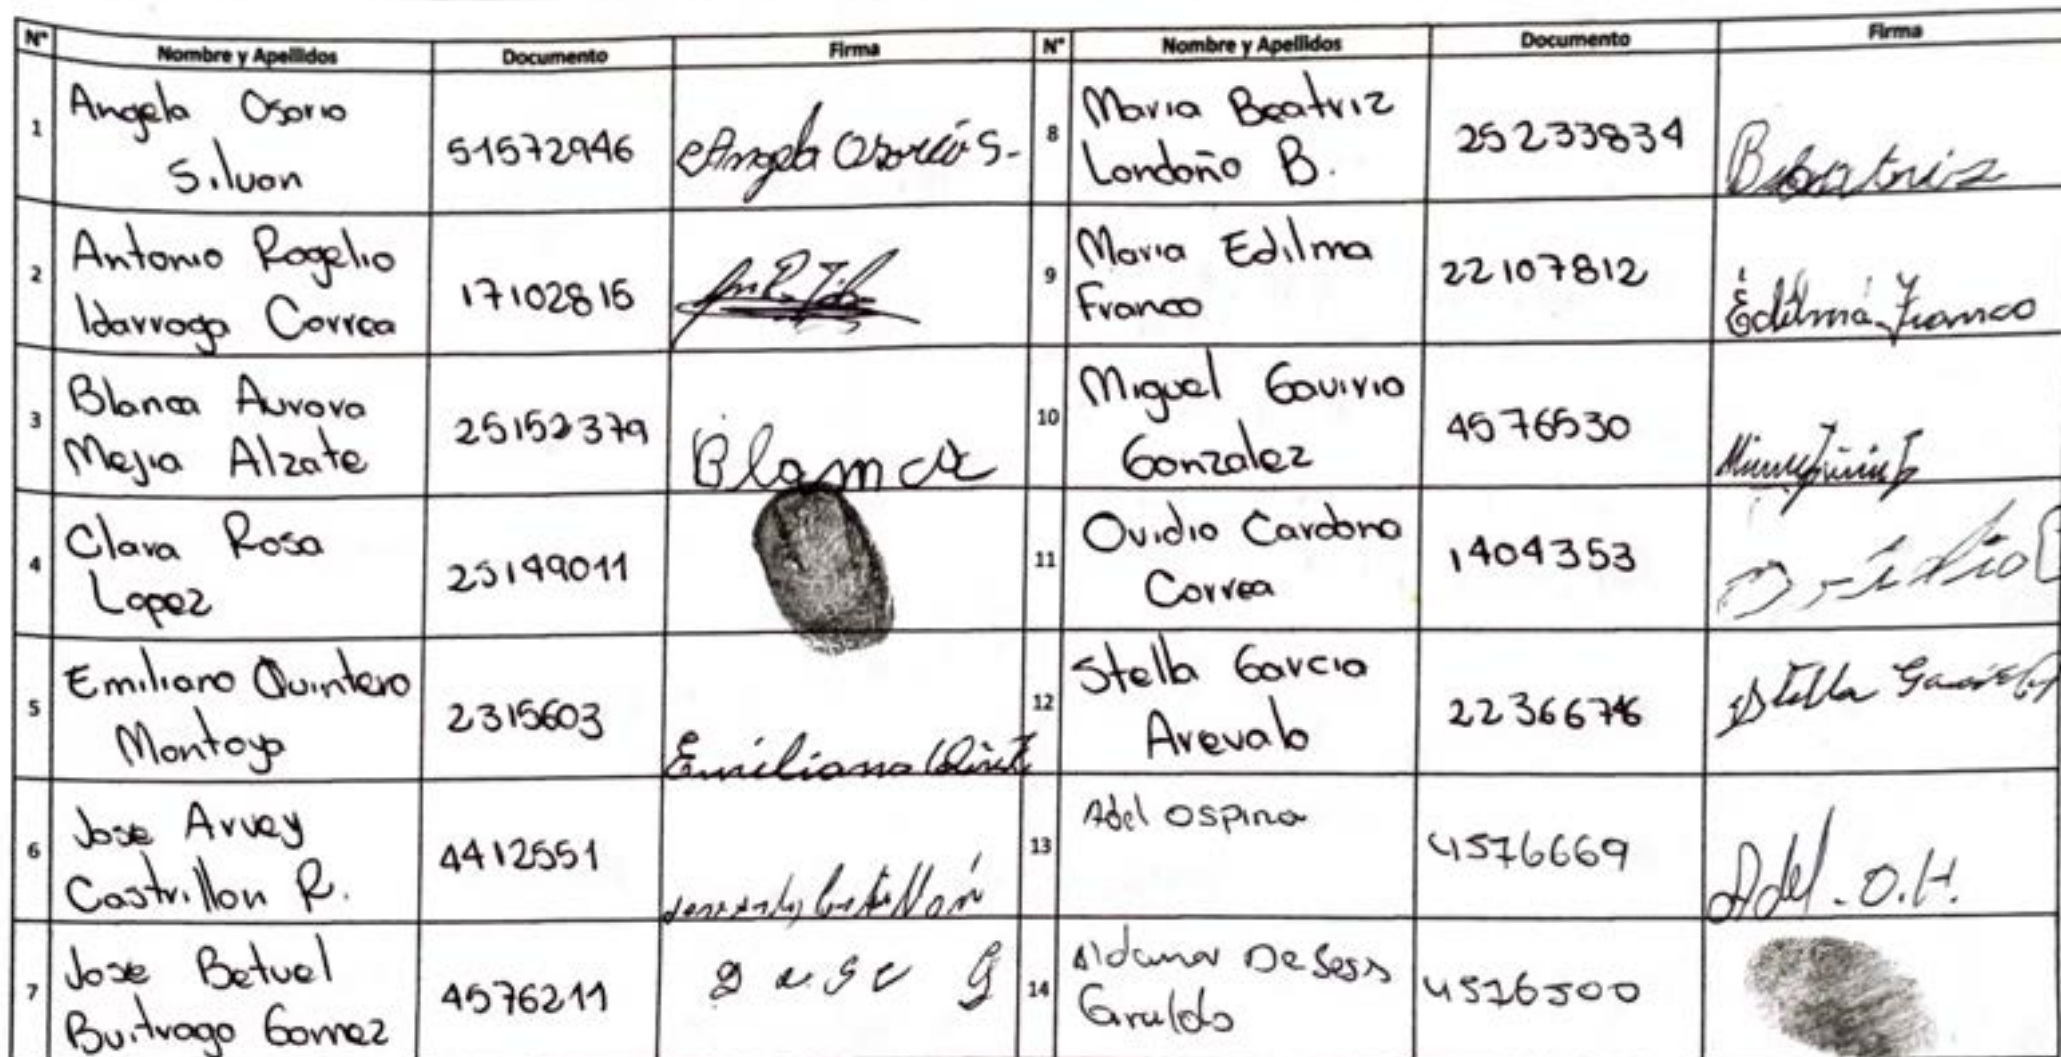 N° Nombre y Apellidos Documento Firma N° Nombre y Apellidos Documento Firma
1 Angela Osorio
Silvan
51572946
Angela Osorio S.
2 Antonio Rogelio
Idarraga Correa
17102815
3 Blanca Aurora
Mejia Alzate
25152379
Blanca
4 Clara Rosa
Lopez
25149011
5 Emiliano Quintero
Montoya
2315603
Emiliano
6 Jose Arvey
Castrillon R.
4412551
Castrillón
7 Jose Betuel
Buitrago Gomez
4576211
8 Maria Beatriz
Londoño B.
25233834
Beatriz
9 Maria Edilma
Franco
22107812
Edilma Franco
10 Miguel Gaviria
Gonzalez
4576530
11 Ovidio Cardona
Correa
1404353
12 Stella Garcia
Arevalo
22366746
Stella
13 Adel Ospina
4576669
Adel. O.H.
14 Aldemar De Jesus
Giraldo
4576500